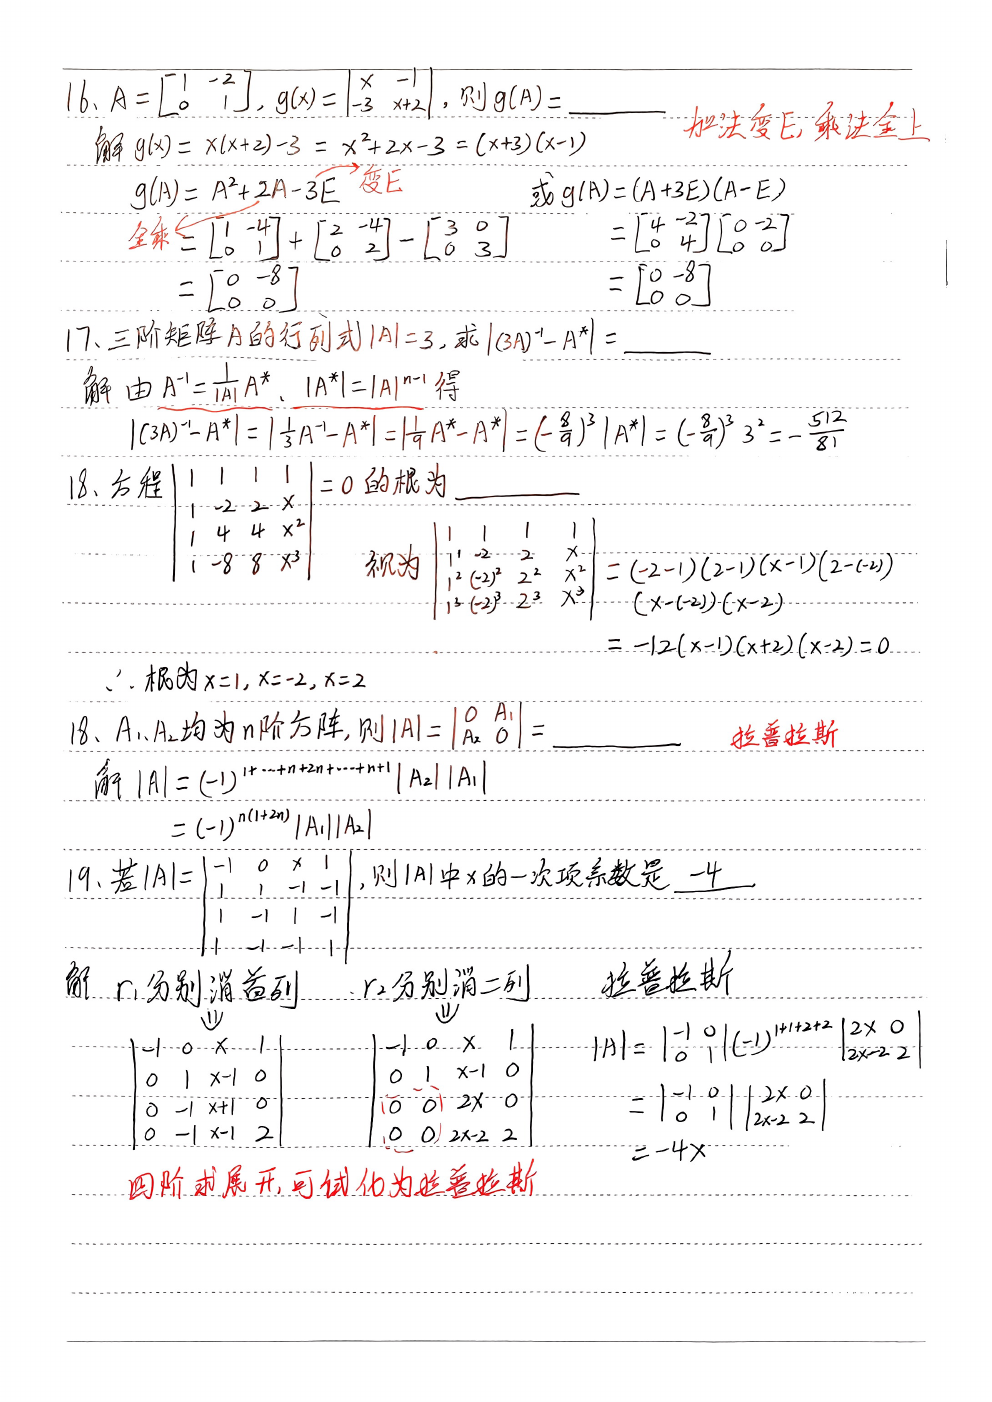 16、A=[1 -2; 0 1], g(x)=|x -1; -3 x+2|, 则g(A)=______
加法变E, 乘法全上
解 g(x)=x(x+2)-3=x²+2x-3=(x+3)(x-1)
g(A)=A²+2A-3E 变E 或g(A)=(A+3E)(A-E)
全乘 =[1 -4; 0 1]+[2 -4; 0 2]-[3 0; 0 3] =[4 -2; 0 4][0 -2; 0 0]
=[0 -8; 0 0] =[0 -8; 0 0]
17、三阶矩阵A的行列式|A|=3, 求|(3A)⁻¹-A*|=______
解 由A⁻¹=1/|A| A*、|A*|=|A|ⁿ⁻¹得
|(3A)⁻¹-A*|=|1/3 A⁻¹-A*|=|1/9 A*-A*|=(-8/9)³|A*|=(-8/9)³ 3²=-512/81
18、方程|1 1 1 1; 1 -2 2 x; 1 4 4 x²; 1 -8 8 x³|=0的根为______
视为|1 1 1 1; 1¹ -2 2 x; 1² (-2)² 2² x²; 1³ (-2)³ 2³ x³|=(-2-1)(2-1)(x-1)(2-(-2))
(x-(-2))(x-2)
=-12(x-1)(x+2)(x-2)=0
∴根为x=1, x=-2, x=2
18、A₁、A₂均为n阶方阵, 则|A|=|0 A₁; A₂ 0|=______ 拉普拉斯
解 |A|=(-1)^(1+⋯+n+2n+⋯+n+1)|A₂||A₁|
=(-1)^(n(1+2n))|A₁||A₂|
19、若|A|=|-1 0 x 1; 1 1 -1 -1; 1 -1 1 -1; 1 -1 -1 1|, 则|A|中x的一次项系数是 -4
解 r₁分别消首列 r₂分别消二列 拉普拉斯
⇓ ⇓
|-1 0 x 1; 0 1 x-1 0; 0 -1 x+1 0; 0 -1 x-1 2| |-1 0 x 1; 0 1 x-1 0; 0 0 2x 0; 0 0 2x-2 2|
|A|=|-1 0; 0 1|(-1)^(1+1+2+2)|2x 0; 2x-2 2|
=|-1 0; 0 1||2x 0; 2x-2 2|
=-4x
四阶求展开, 可试化为拉普拉斯